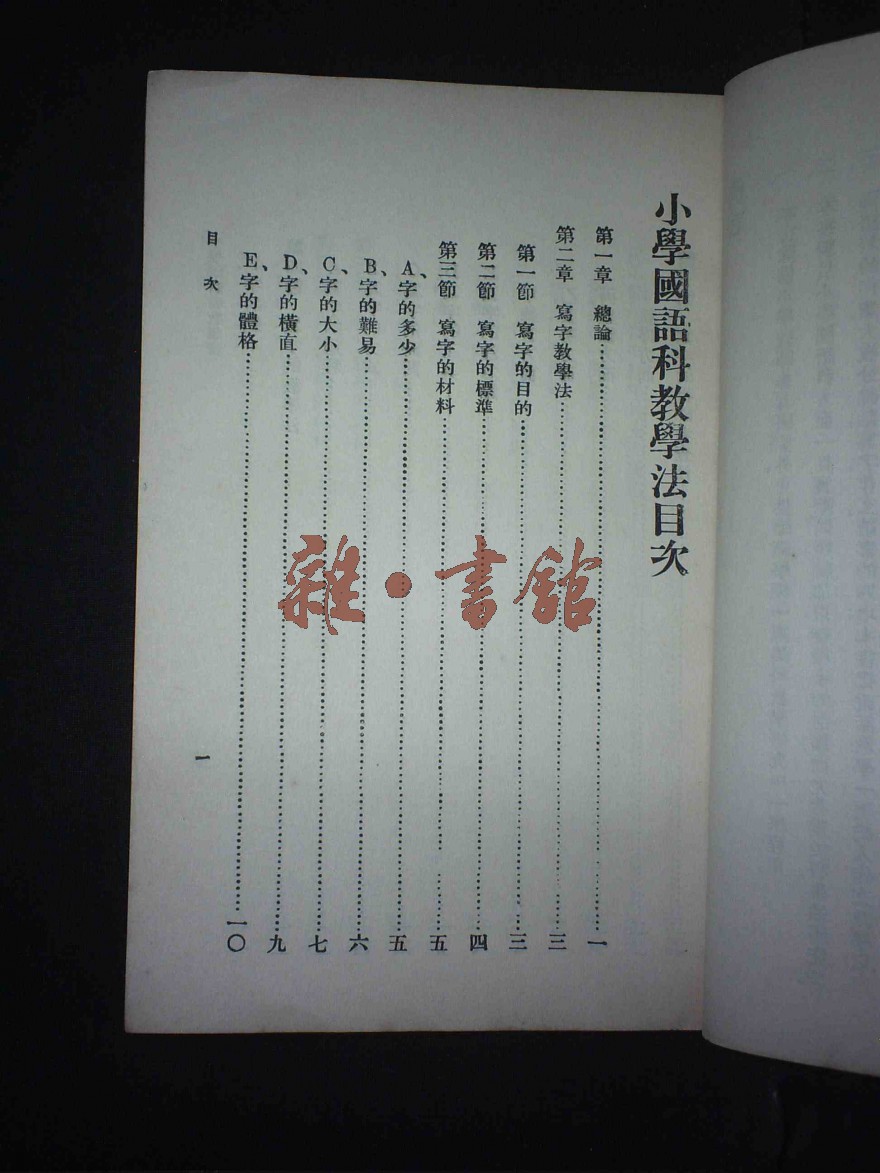 小學國語科教學法目次
第一章 總論……一
第二章 寫字教學法……三
第一節 寫字的目的……三
第二節 寫字的標準……四
第三節 寫字的材料……五
A、字的多少……五
B、字的難易……六
C、字的大小……七
D、字的橫直……九
E、字的體格……一〇
目次
一
雜·書館